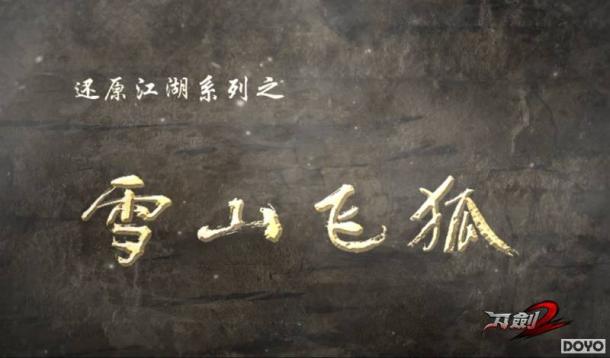 还原江湖系列之
雪山飞狐
刀劍2
DOYO